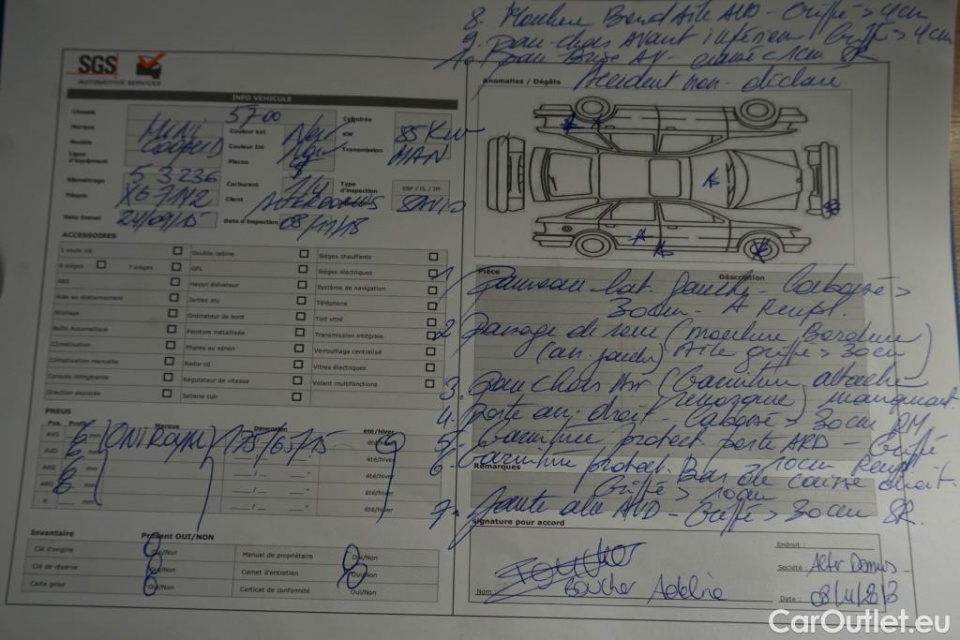 8. Moulure Bord Aile AVD - Griffé > 4cm
9. Pare-chocs Avant inférieur Griffé > 4cm
AV - 1cm SR
Accident non-déclaré
SGS
AUTOMOTIVE SERVICES
INFO VEHICULE
Chassis 5700 Cylindrée
Marque MINI Couleur ext Noir KW 85 KW
Modèle COOPER D Couleur Int Noir Transmission MAN
Ligne d'équipement Places
Kilométrage 53236 Carburant Type d'inspection ESP / FL / IM
Plaque Client ALTERDOMUS
Date Immat 24/09/15 Date d'inspection
ACCESSOIRES
Double cabine Sièges chauffants
7 sièges GPL Sièges électriques
ABS Hayon élévateur Système de navigation
Aide au stationnement Jantes alu Téléphone
Attelage Ordinateur de bord Toit vitré
Boîte Automatique Peinture métallisée Transmission intégrale
Climatisation Phares au xénon Verrouillage centralisé
Climatisation manuelle Radio cd Vitres électriques
Console réfrigérante Régulateur de vitesse Volant multifonctions
Direction assistée Sellerie cuir
PNEUS
Pos. Profil Marque Dimension été/hiver
AVG 6 mm UNIROYAL 175/65/15 été/hiver
AVD 6 mm été/hiver
ARG 6 mm été/hiver
ARD 6 mm été/hiver
R mm été/hiver
Inventaire Présent OUI/NON
Clé d'origine Oui/Non Manuel de propriétaire Oui/Non
Clé de réserve Oui/Non Carnet d'entretien Oui/Non
Carte grise Oui/Non Certicat de conformité Oui/Non
Anomalies / Dégâts
Pièce Description
1 Panneau lat. gauche - Cabossé >
30cm - A Rempl.
2 Passage de roue (moulure Bordure
(arr. gauche) Aile griffé > 30cm
3. Pare chocs Arr (Garniture attache
remorque) manquant
4. Porte arr. droit - Cabossé > 30cm RM
5. Garniture protect. porte ARD - Griffé
> 10cm Rempl.
6. Garniture protect. Bas de caisse droit.
Griffé > 10cm
Remarques
7. Jante alu AVD - Griffé > 30cm SR.
signature pour accord
Endroit :
Société : Alter Domus
Nom Boucher Adeline Date :
CarOutlet.eu